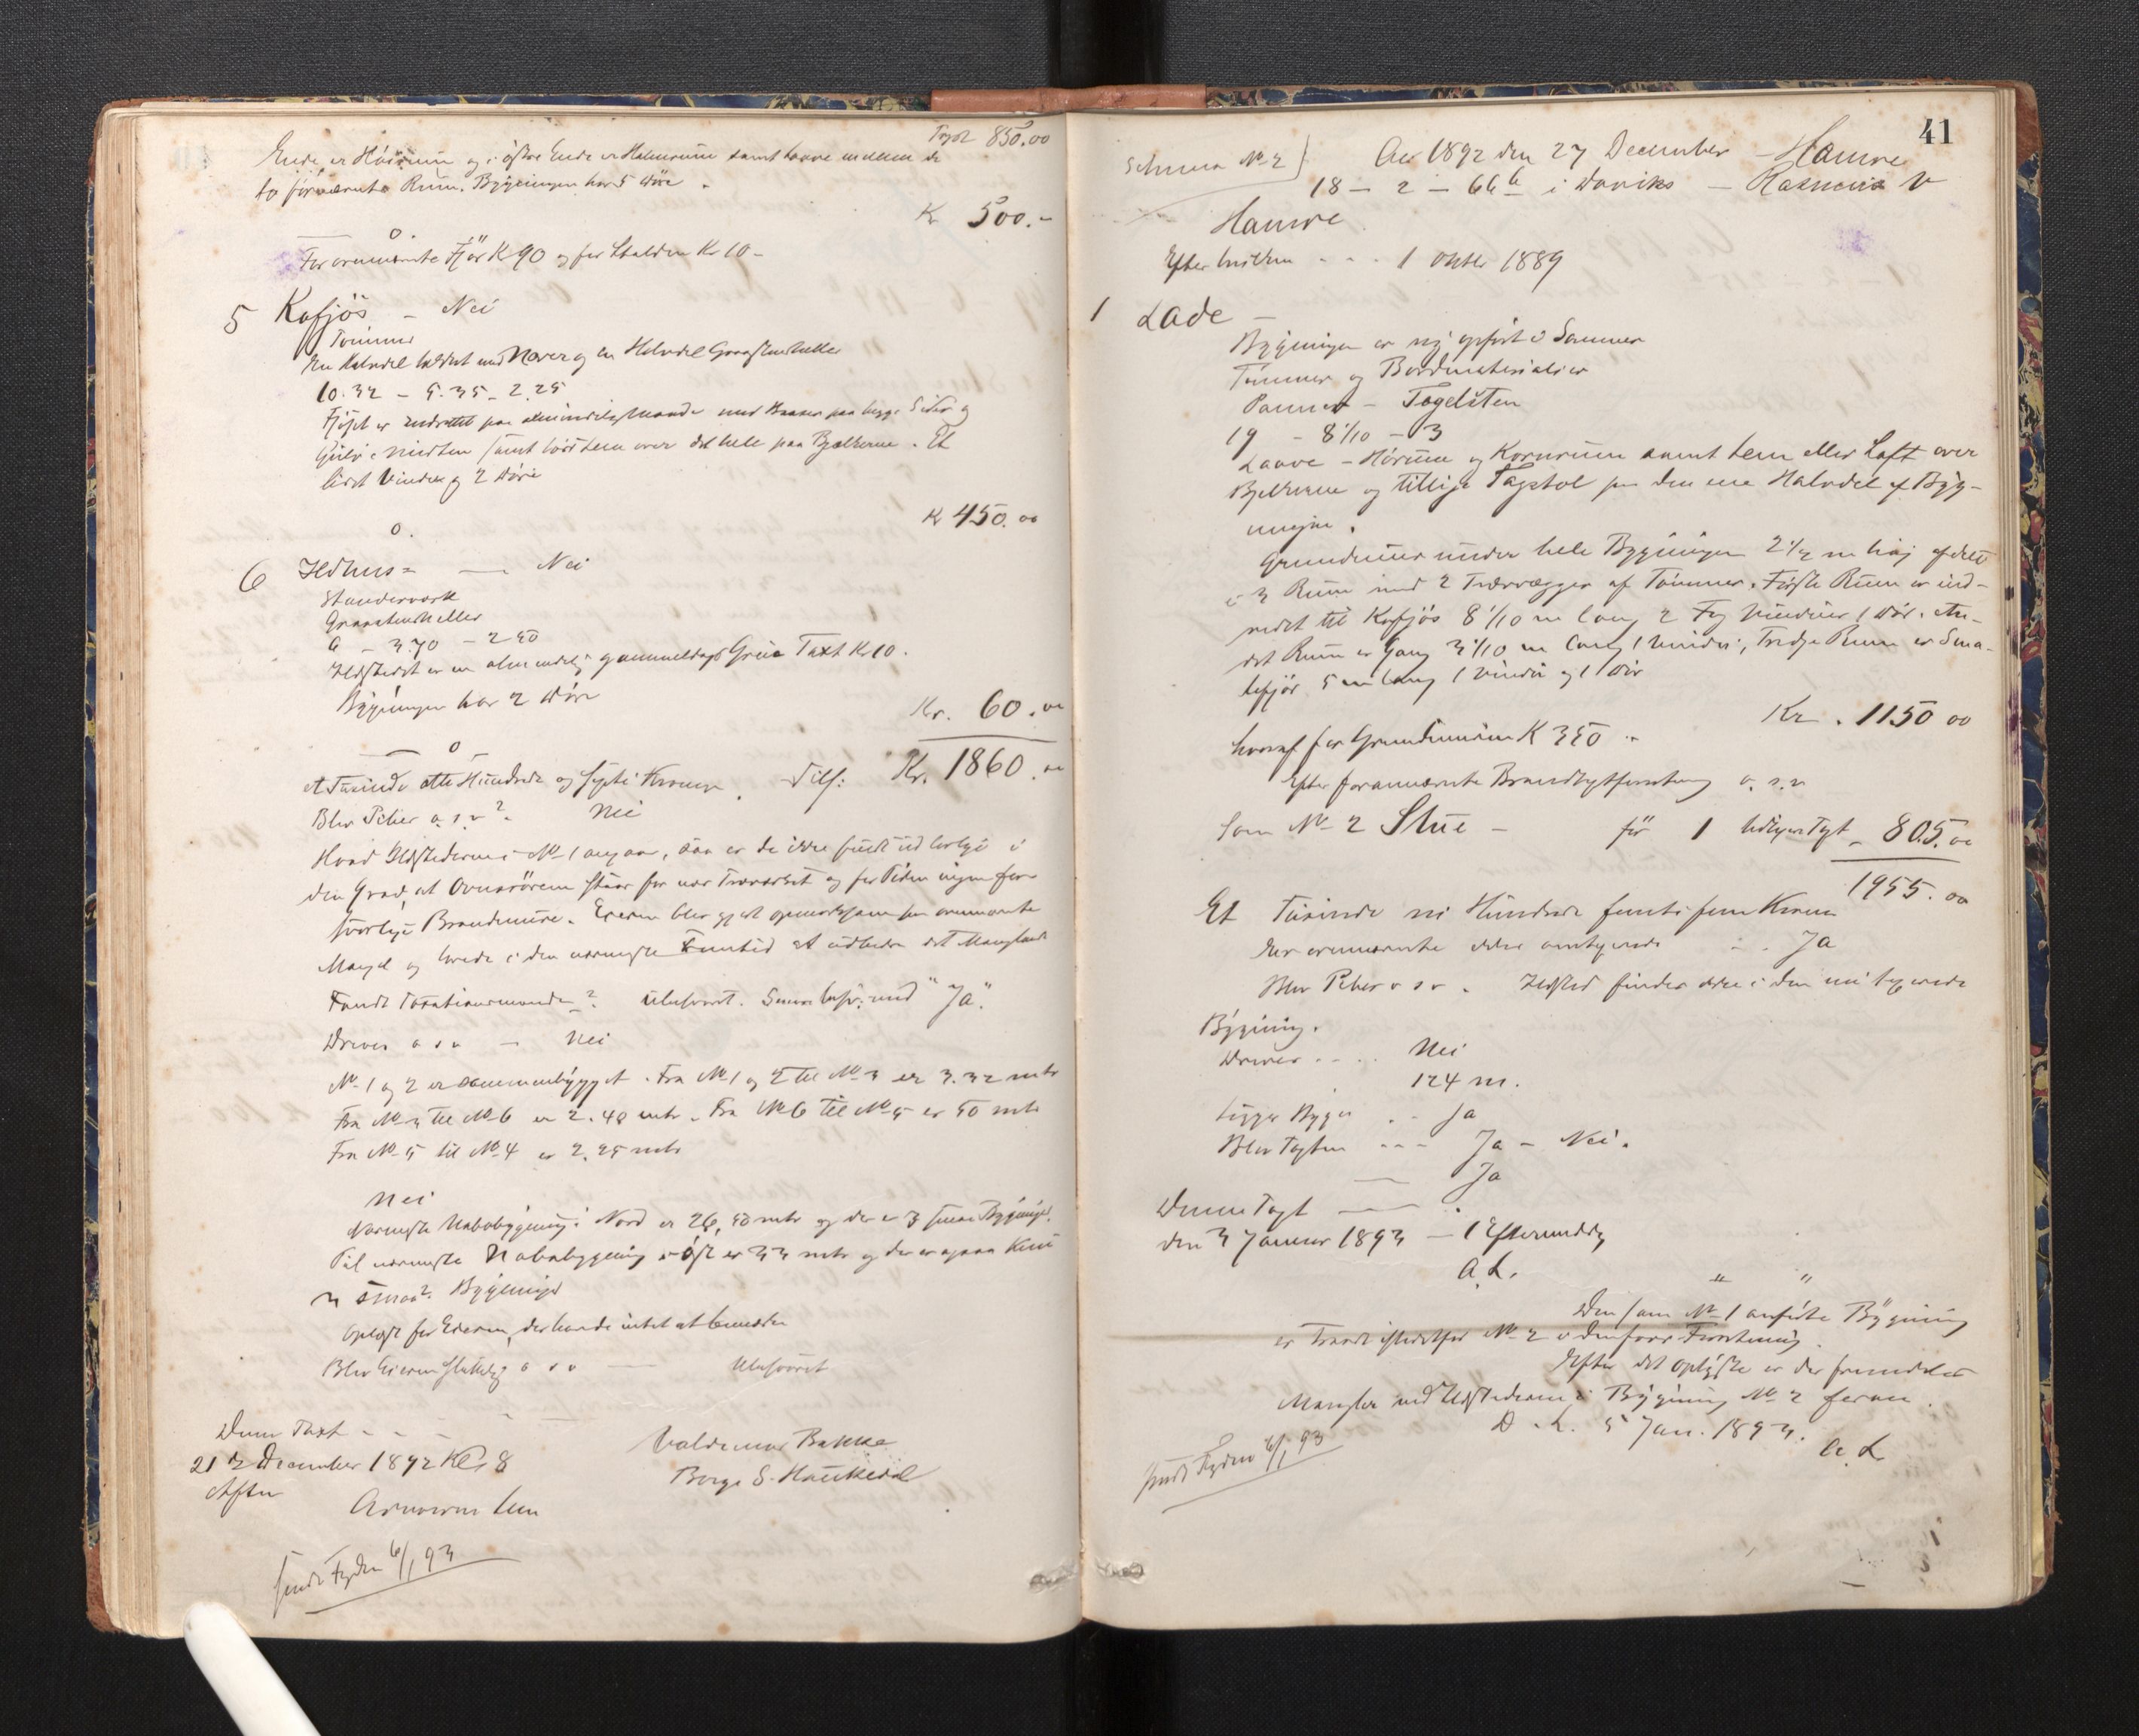 Taxt 850.00
Ende er Hørum og i østre Ende er Halmrum samt Laave mellem de
to førnævnte Rum. Bygningen har 5 Døre.
Kr 500.-
o.
For ovennævnte Fjøs K 90 og for Stalden Kr 10 -
5 Kofjøs - Nei
Tømmer
En Halvdel tækket med Never og en Halvdel Graastenheller
10.32 - 5.35 - 2.25
Fjøset er indrettet paa almindelig Maade med Baaser paa begge Sider og
Gulv i Midten samt Hem over det hele paa Bjælkerne. Et
lidet Vindu og 2 Døre
Kr 450.00
o.
6 Ildhus = — Nei
Standerværk
Graastenheller
6 - 3.70 - 2.50
Ildstedet er en almindelig gammeldags Grue Taxt Kr 10.
Bygningen har 2 Døre
Kr. 60.00
o
et Tusinde otte Hundrede og sexti Kroner. Tils: Kr. 1860.00
Blev Piber o. s. v? Nei
Hvad Ildstederne i No 1 angaar, saa er de ikke fundt ud lovlige i
den Grad, at Ovnsrørene staar for nær Træværket og for Piden ingen for-
svarlige Brandmure. Eieren blev gjort opmærksom paa ovennævnte
Mangel og lovede i den nærmeste Fremtid at udbedre det Manglende
Fandt Taxationsmænden? Ubesvaret. besv. med "Ja".
Drives o s v - Nei
No 1 og 2 er sammenbygget. Fra No 1 og 2 til No 3 er 3.32 mtr
Fra No 3 til No 6 er 2.48 mtr. Fra No 6 til No 5 er 50 mtr
Fra No 5 til No 4 er 2.25 mtr
Nei
Nærmeste Nabobygning i Nord er 26,50 mtr og der er 3 smaa Bygninger.
Til nærmeste Nabobygning i Øst er 33 mtr og der er ogsaa kun
3 smaa Bygninger
Oplæst for Eieren, der havde intet at bemærke
Blev Eieren skriftlig o s v — Ubesvaret
Denne Taxt - - -
21 de December 1892 Kl. 8
Aften
Valdemar Bakke
Børge S. Haukedal
sendt Fogden 6/1 93
41
Schema No 2} Aar 1892 den 27 December - Hamre
18 - 2 - 66 b i Daviks - Rasmus
Hamre
Efter hvilken - - . 1 Oktbr 1889
1 Lade -
Bygningen er ny opført i Sommer
Tømmer og Bordmaterialier
Panner - Tagelsten
19 - 8 1/10 - 3
Laave - Hørum og Kornrum samt Hem eller Loft over
Bjelkerne og tillige Tagstol paa den ene Halvdel af Byg-
ningen.
Grundmur under hele Bygningen 2 1/2 m høi afdelt
i 3 Rum med 2 Tværvægger af Tømmer. Første Rum er ind-
redet til Kofjøs 8 1/10 m lang 2 Fag Vinduer 1 Dør. An-
det Rum er Gang 3 1/10 m lang 1 Vindu; Tredje Rum er Sma-
lefjøs 5 m lang 1 Vindu og 1 Dør
Kr. 1150 00
hvoraf for Grundmuren K 350 -
Efter forannævnte Brandtaxtforretning o. s. v
som No 2 Stue - før 1 tidligere Taxt - 805.00
1955.00
Et Tusinde ni Hundrede femti fem Kroner
Er ovennævnte - . Ja
Blev Piber o s v. Ildsted findes ikke i den ny byggede
Bygning.
Drives - - . . Nei
124 m.
Ligger Bygn . - Ja
Blev Taxten - - - Ja - Nei.
— Ja
Denne Taxt — .
den 3 Januar 1893 - 1 Eftermiddag
A. L.
" "
Den som No 1 anførte Bygning
er traadt istedetfor No 2 i den forr. Forretning.
Efter det oplyste er der fremdeles
Mangler ved Ildstederne i Bygning No 2 foran.
D. L. 5 Jan. 1893.
A. L
sendt Fogden 6/1 93